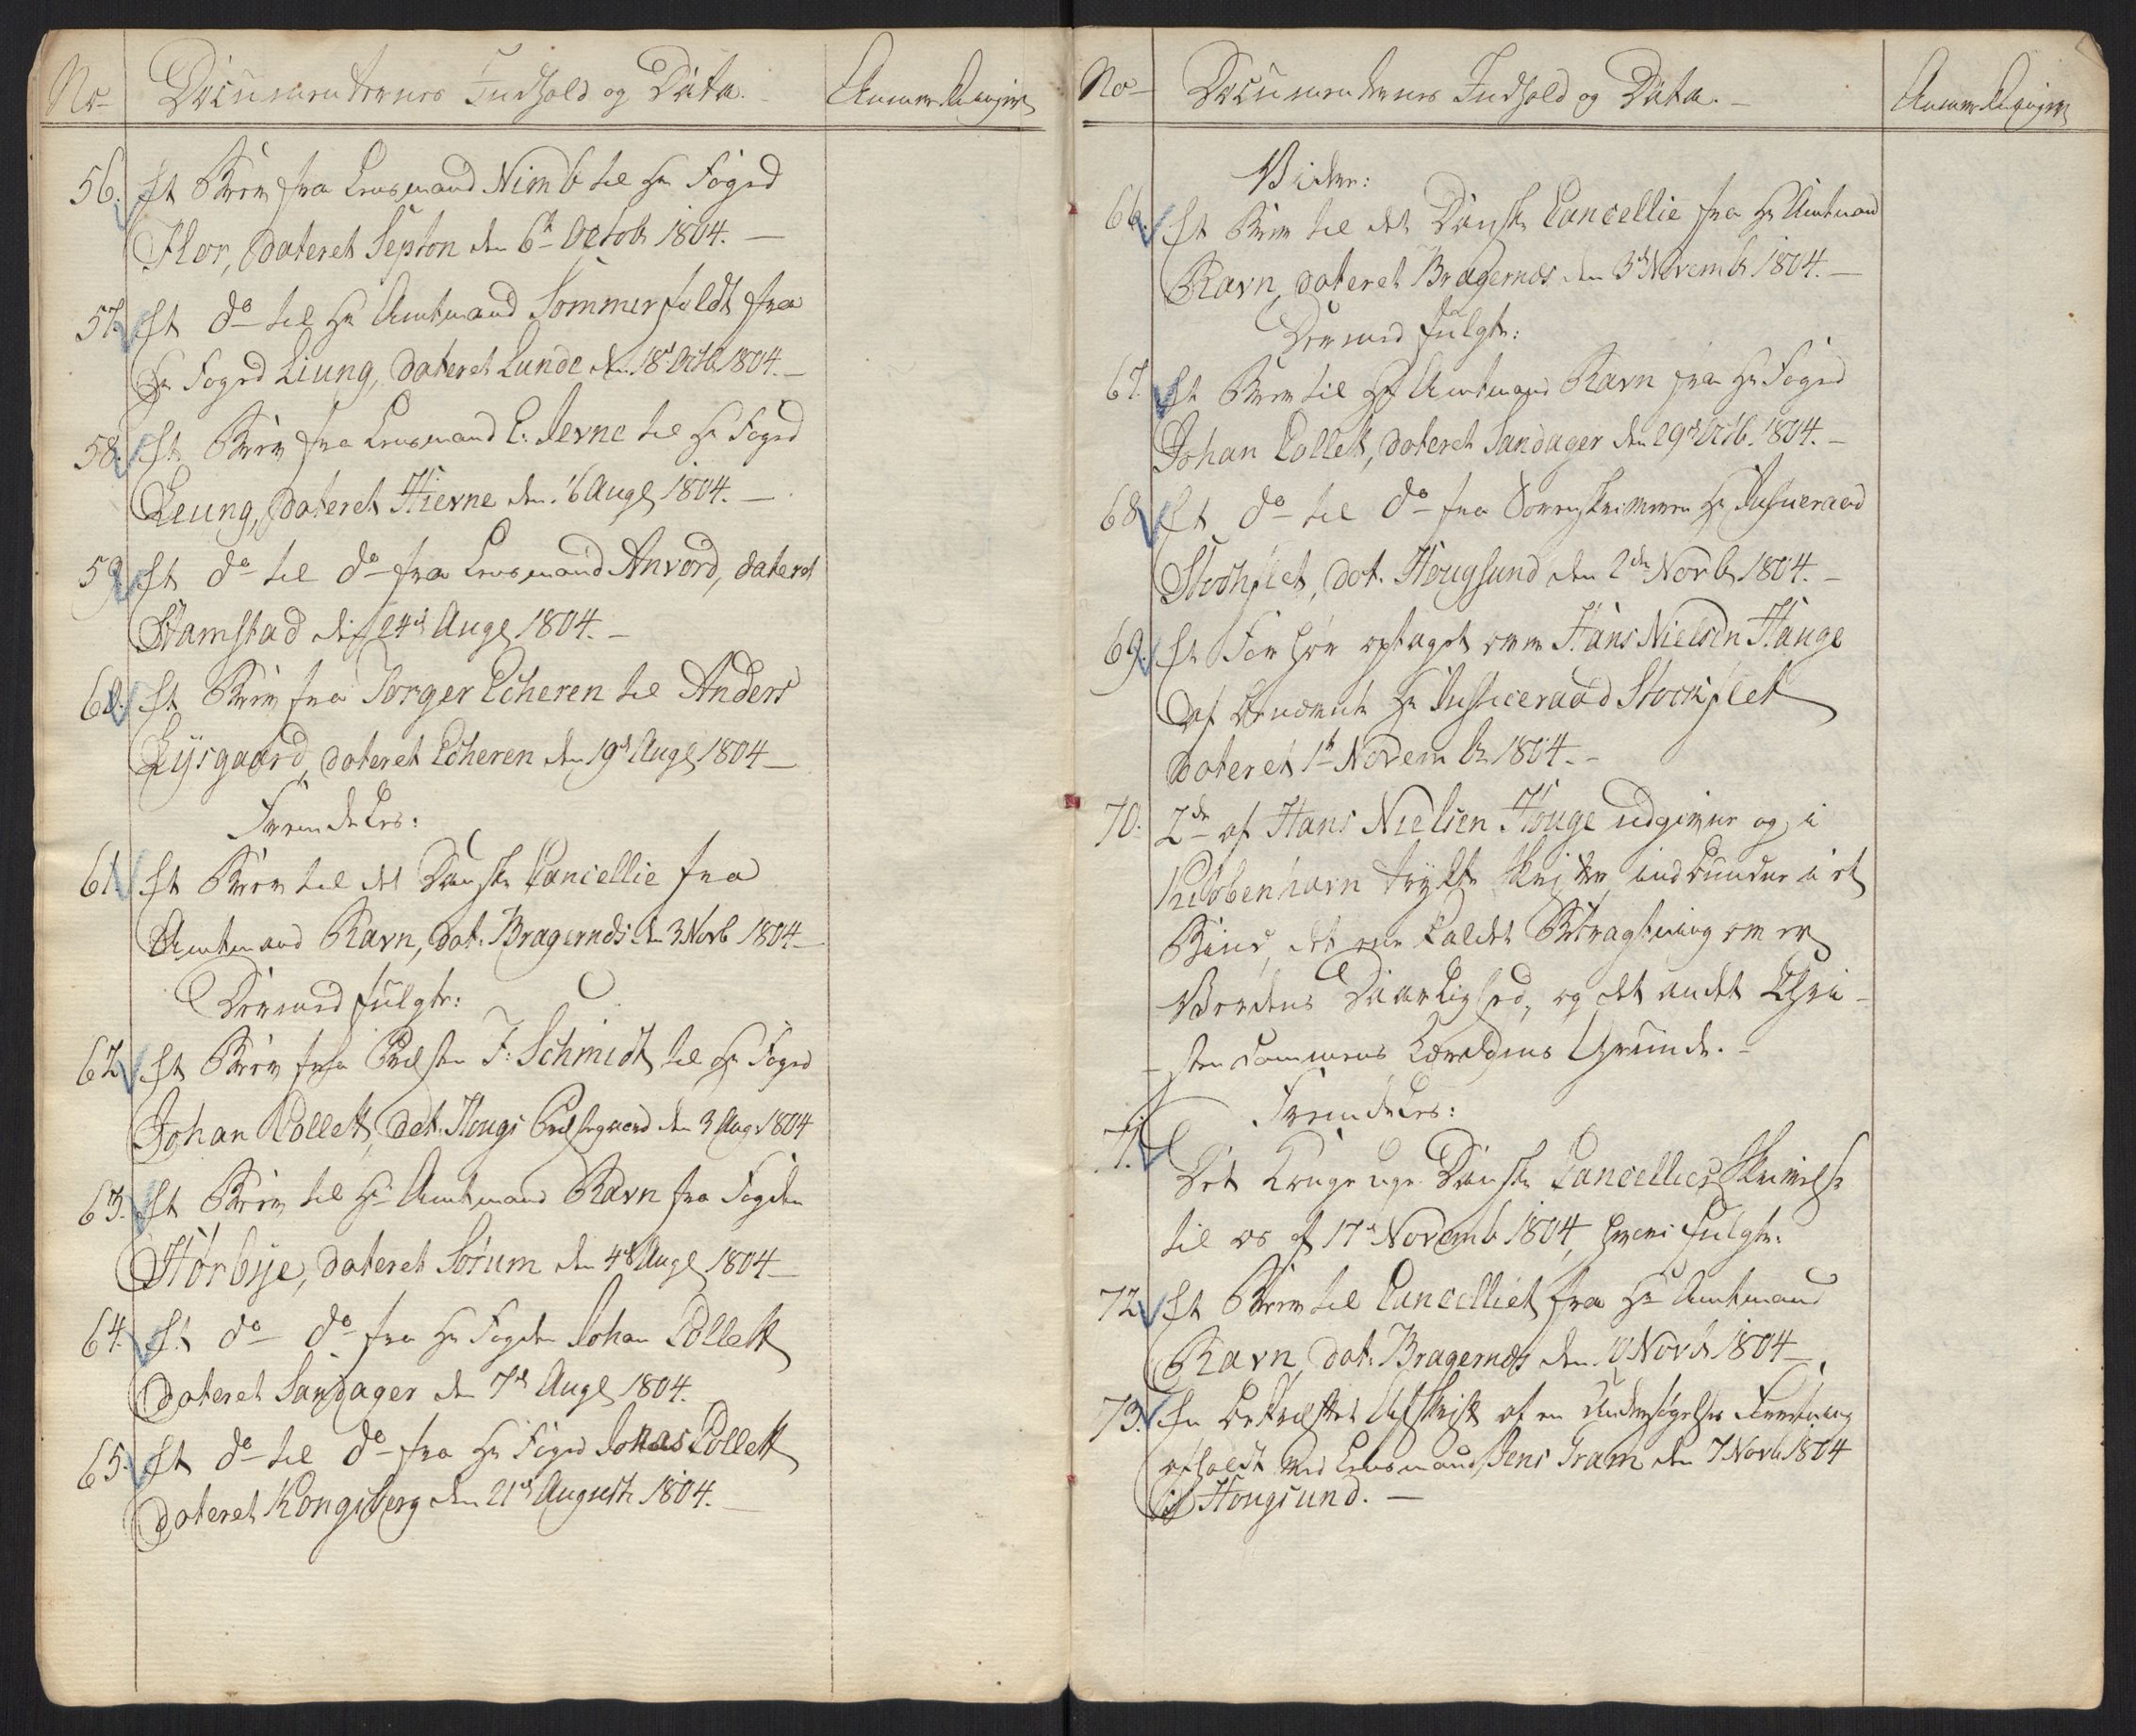 No Documenternes Indhold og Data. Anmerkninger
56. Et Brev fra Lensmand Nimb til Hr Foged
Flor, dateret Septon den 6te Octob 1804.
57. Et do til Hr Amtmand Sommerfeldt fra
Hr Foged Liung, dateret Lunde den 18de Octb 1804.
58. Et Brev fra Lensmand E. Jevne til Hr Foged
Leung, dateret Hievne den 16 Augl 1804.
59. Et do til do fra Lensmand Anvord, dateret
Hamstad den 24de Augl 1804.
60. Et Brev fra Torger Echeren til Anders
Lysgaard, dateret Echeren den 19de Augl 1804
Fremdeles:
61. Et Brev til det Danske Cancellie fra
Amtmand Ravn, dat. Bragernes den 3 Novb 1804
Dermed fulgte:
62. Et Brev fra Præsten F. Schmidt til Hr Foged
Johan Collett, dat. Hougs Præstegaard den 3 Aug 1804
63. Et Brev til Hr Amtmand Ravn fra Fogden
Hørbye, dateret Sørum den 4de Augl 1804
64. Et do do fra Hr Fogden Johan Collett
dateret Sandager den 7de Augl 1804.
65. Et do til do fra Hr Foged Jonas Collett
dateret Kongsberg den 21de August 1804.
No Documenternes Indhold og Data. Anmerkninger
Videre:
66. Et Brev til det Danske Cancellie fra Hr Amtmand
Ravn, dateret Bragernes den 3de Novemb 1804.
Dermed fulgte:
67. Et Brev til Hr Amtmand Ravn fra Hr Foged
Johan Collett, dateret Sandager den 29de Octb. 1804.
68. Et do til do fra Sorenskriveren Hr Justiceraad
Stockflet, dat. Hougsund den 2den Novb 1804.
69. Et Forhør optaget over Hans Nielsen Hauge
af bemeldte Hr Justiceraad Stockflet
dateret 1te Novemb 1804.
70. 2de af Hans Nielsen Houge udgivne og i
Kiøbenhavn trykte Skrifter indbundne i et
Bind, det ene kaldet Betragtning over
Verdens Daarlighed, og det andet Chri-
-stendommens Lærdoms Grunde.
Fremdeles:
71. Det Kongelige Danske Cancellies Skrivelse
til os af 17de Novemb 1804, hvori fulgte:
72. Et Brev til Cancelliet fra Hr Amtmand
Ravn, dat. Bragernes den 10 Novb 1804
73. En bekræftet Udskrift af en Undersøgelses Forretning
afholdt ved Lensmand Jens Tram den 7 Novb 1804
i Hougsund.